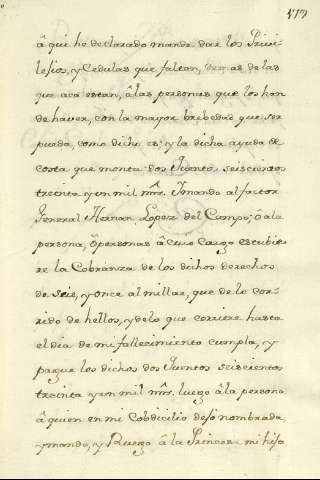 â qui he declarado mande dar los Privi-
lesios, y Cedulas que faltan, demas de las
que aca estan, â las personas que los han
de haver, con la mayor brebedad que ser
pueda, como dicho es: y la dicha ayuda de
costa que monta dos Juentos seiscientos
treinta y un mil mrs. Imando al factor
General Hernan Lopez del Campo; ô â la
persona, ô personas â cuio Cargo estubie-
re la Cobranza de los dichos derechos
de seis, y once al millar, que de lo cor-
rido de hellos, y de lo que corriere hasta
el dia de mi fallecimiento cumpla, y
pague los dichos dos Juentos seiscientos
treinta y un mil mrs. luego â la persona
â quien en mi Cobdicilio dejo nombrada,
y mando, y Ruego â la Princesa mi hija